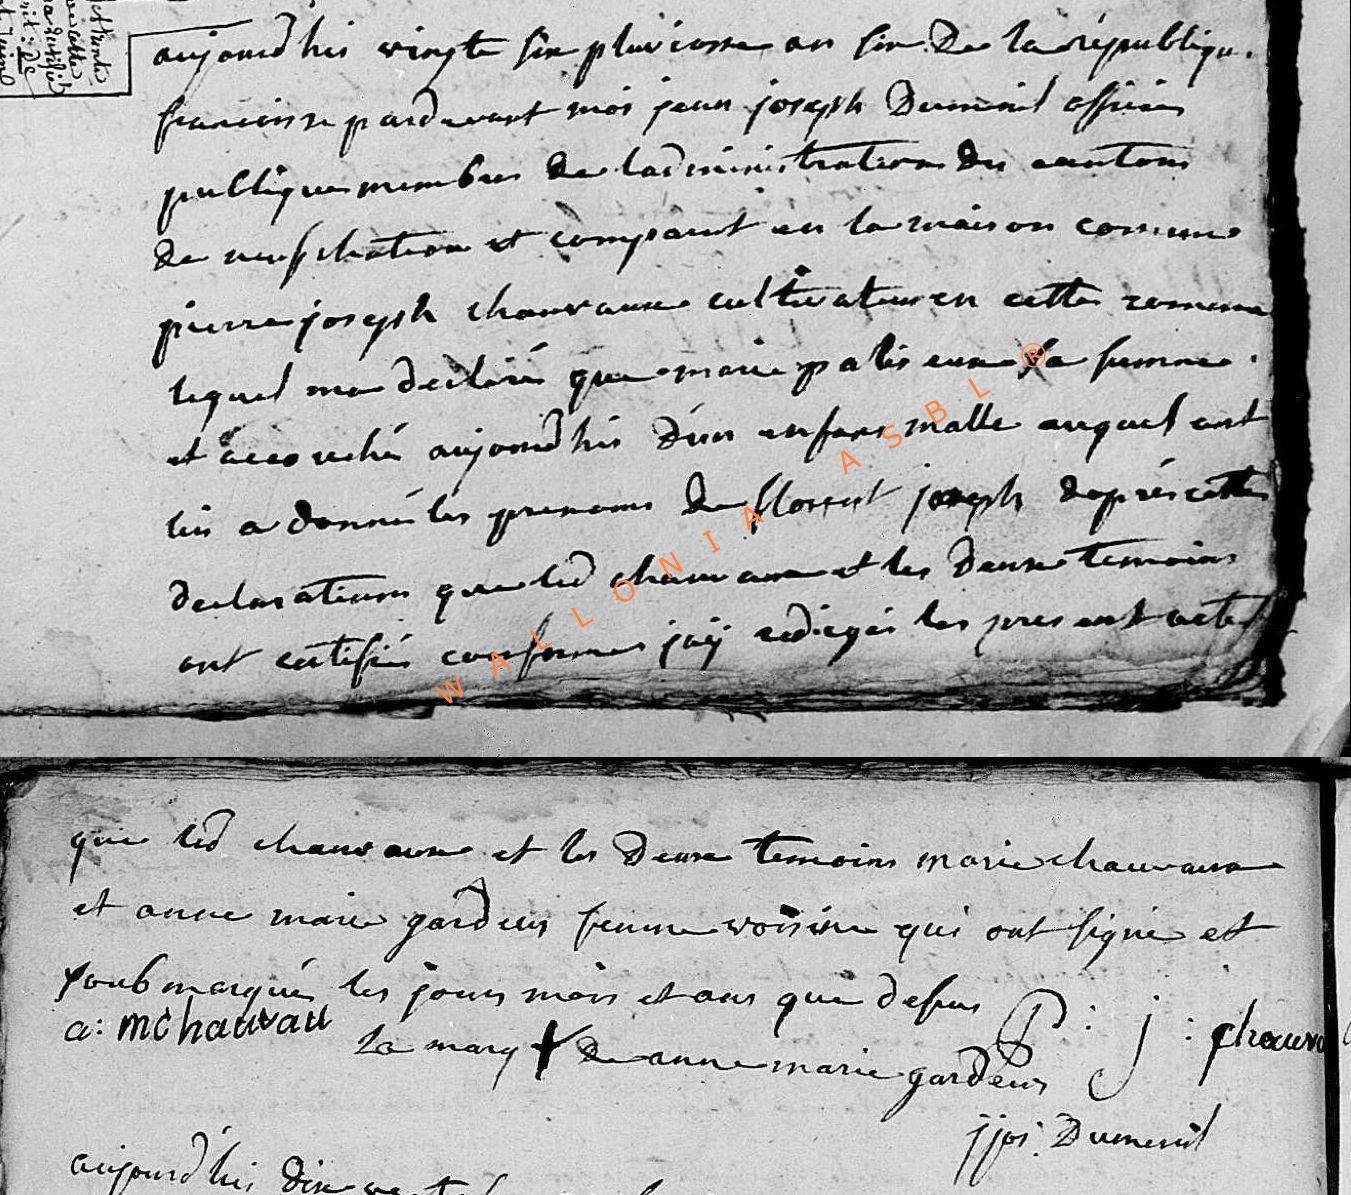 aujourd'hui vingte six pluviosse an six De la républiqu.
francoisse pardevant moi jean joseph Dumenil officier
publique membres de ladministration du canton
de neufchateau et comparut en la maison comune
pierre joseph chauvaux cultivateur en cette comune
lequel ma declaré que marie palis eune sa femme
et accouché aujourd'hui D'un enfans malle auquel ont
lui a donné les prenoms de florent joseph daprés cette
declarations que led chauvaux et les Deux temoins
ont certifié conforme jaÿ redigés les present acte
que led chauvaux et les Deux temoins marie chauvaux
et anne marie gardeur femme voisine qui ont signé et
soubmarqué les jours mois et ans que desus
P: J: chauvau
a: mchauvau
La marq + De anne marie gardeur
jjos: Dumenil
aujourd'hui dix
WALLONIA ASBL ®